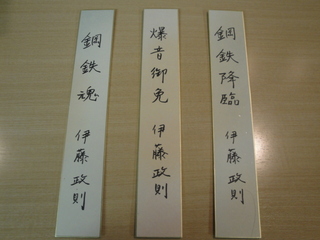 鋼鉄降臨 伊藤政則
爆音御免 伊藤政則
鋼鉄魂 伊藤政則